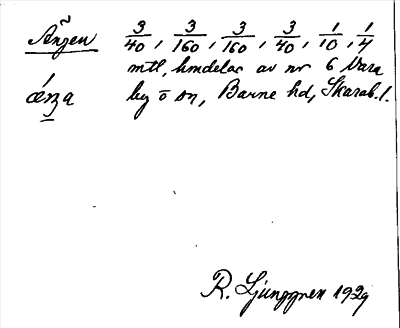 Ängen 3/40, 3/160, 3/160, 3/40, 1/10, 1/4
mtl, hmdelar av nr 6 Vara
by o sn, Barne hd, Skarab. l.
R. Ljunggren 1929